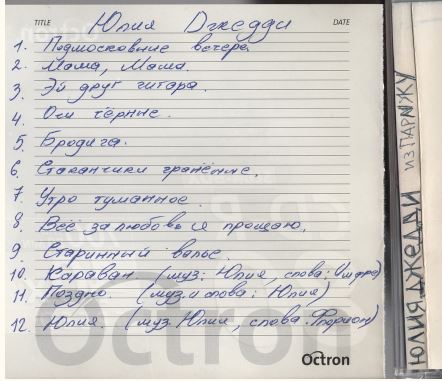 TITLE Юлия Джедди DATE
1. Подмосковные вечера.
2. Мама, Мама.
3. Эй друг гитара.
4. Очи чёрные.
5. Бродяга.
6. Стаканчики гранённые.
7. Утро туманное.
8. Всё за любовь я прощаю.
9. Старинный вальс.
10. Караван (муз: Юлия, слова:
11. Поздно. (муз и слова: Юлия)
12. Юлия. (муз Юлии, слова. Флориан)
Octron
Octron
ЮЛИЯ ДЖЕДДИ ИЗ ПАРИЖУ